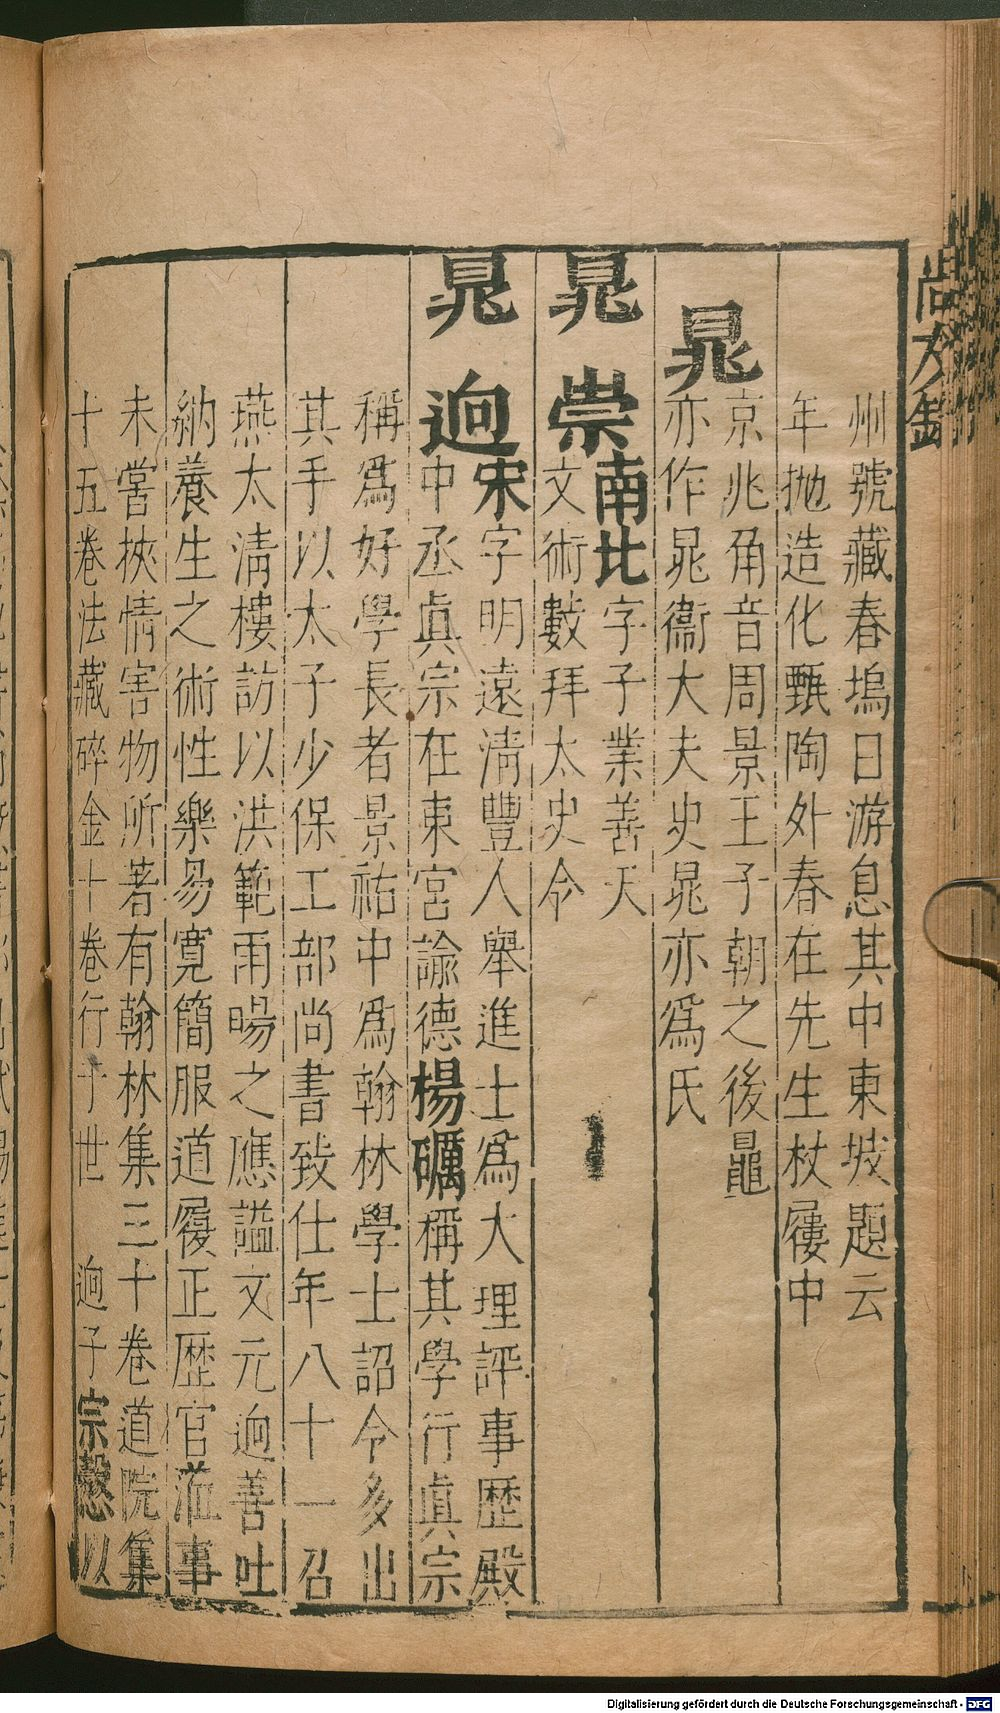 尚友錄
州號藏春塢日游息其中東坡題云
年拋造化甄陶外春在先生杖屨中
晁
京兆角音周景王子朝之後鼂
亦作晁衞大夫史晁亦爲氏
晁崇
南北字子業善天
文術數拜太史令
晁迥
宋字明遠淸豐人舉進士爲大理評事歷殿
中丞眞宗在東宮諭德楊礪稱其學行眞宗
稱爲好學長者景祐中爲翰林學士詔令多出
其手以太子少保工部尚書致仕年八十一召
燕太淸樓訪以洪範雨暘之應謚文元迥善吐
納養生之術性樂易寬簡服道履正歷官蒞事
未嘗挾情害物所著有翰林集三十卷道院集
十五卷法藏碎金十卷行于世 迥子宗慤以
Digitalisierung gefördert durch die Deutsche Forschungsgemeinschaft - DFG